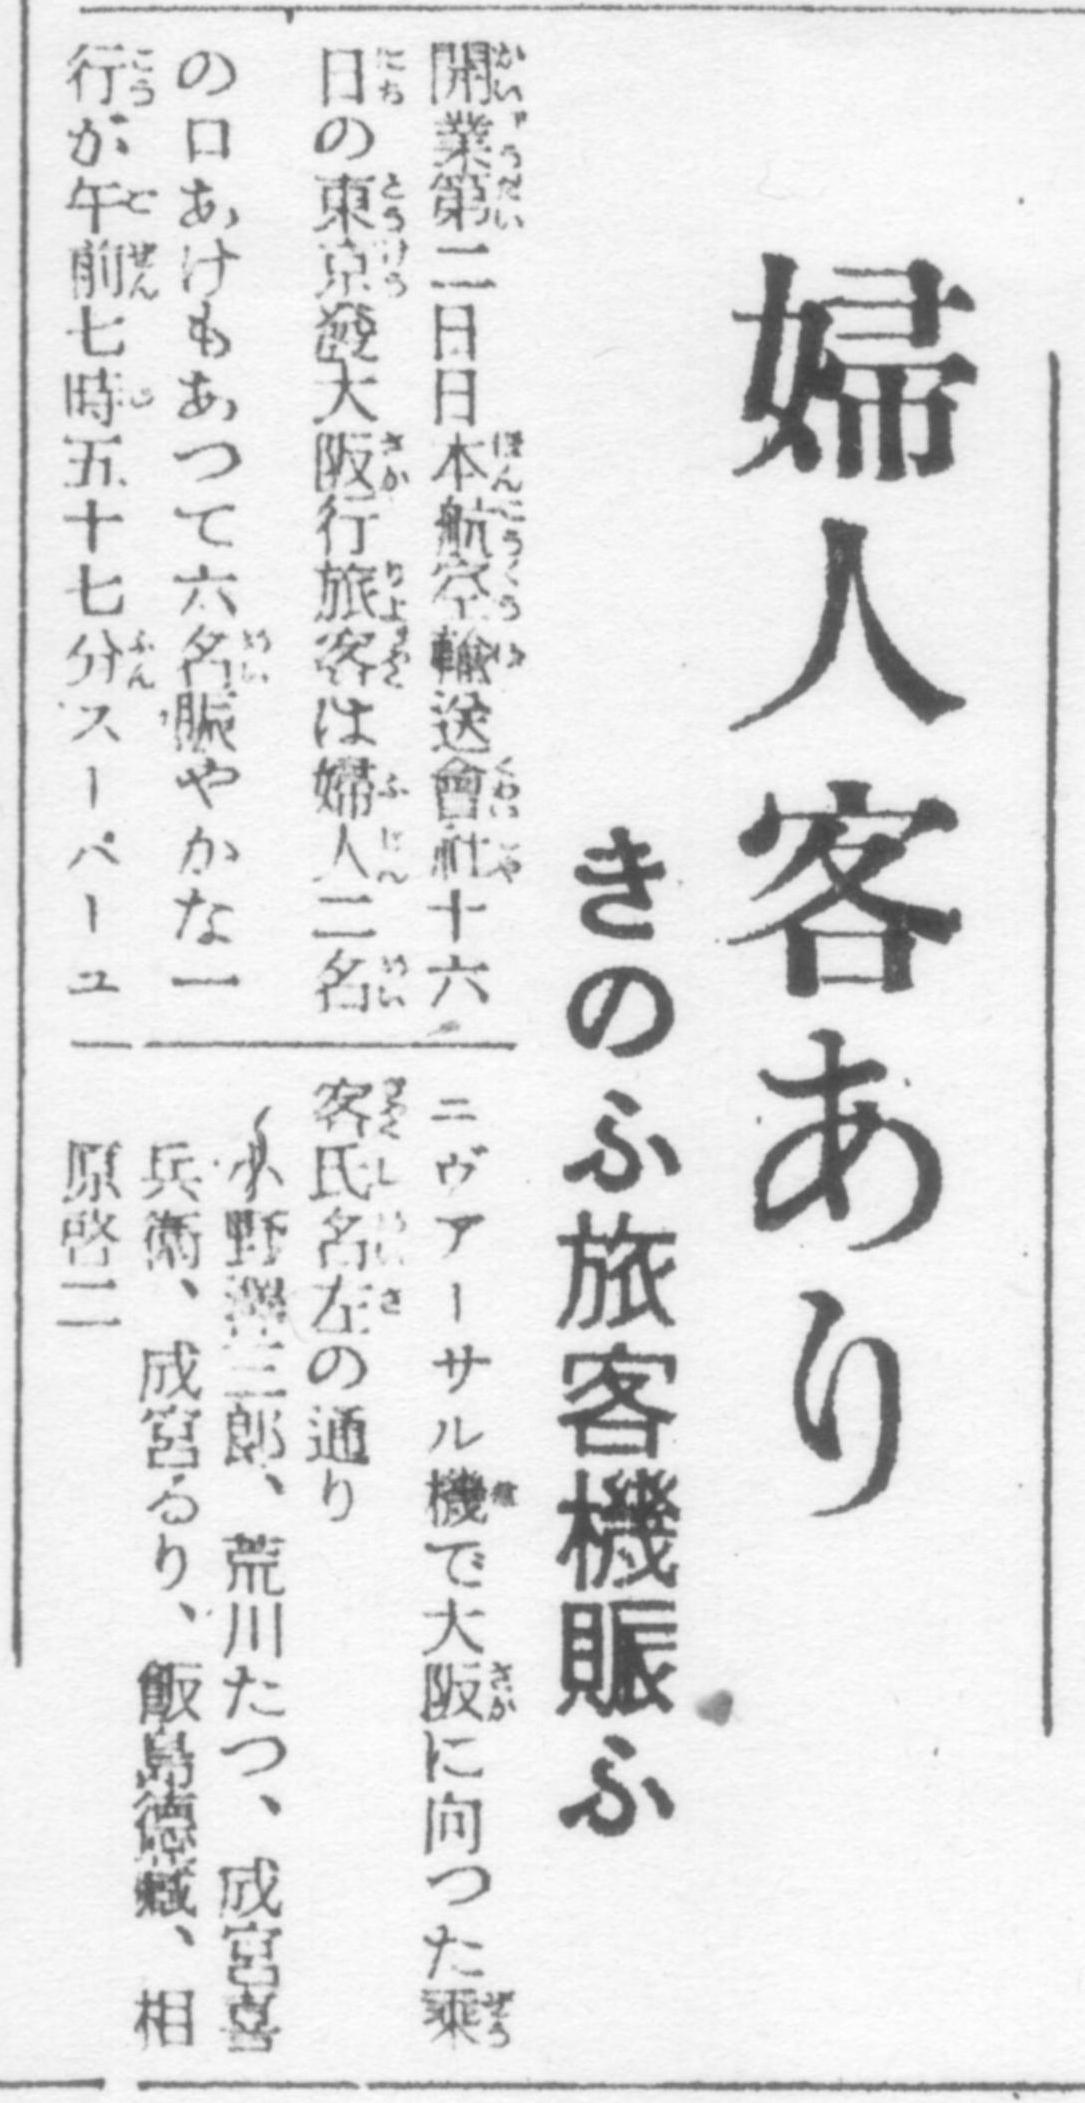 婦人客あり
きのふ旅客機賑ふ
開業第二日日本航空輸送會社十六
日の東京發大阪行旅客は婦人二名
の口あけもあつて六名賑やかな一
行が午前七時五十七分スーパーユ
ニヴアーサル機で大阪に向つた乘
客氏名左の通り
小野三郎、荒川たつ、成宮喜
兵衞、成宮るり、飯島德藏、相
原啓二